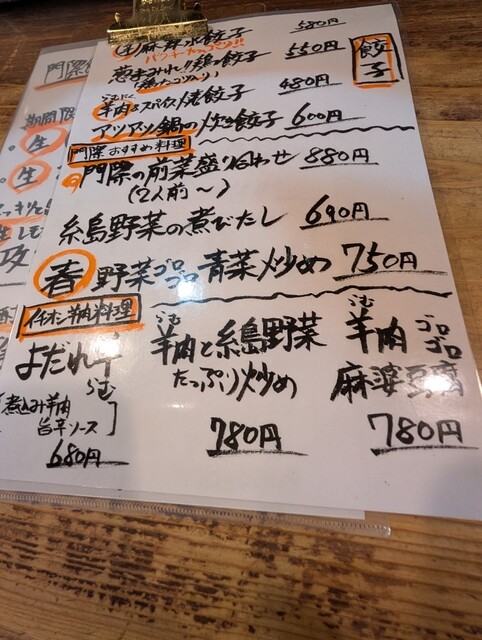 餃子
麻辣水餃子 580円
パクチーたっぷり!!
葱まみれ!!鶏餃子 550円
らむにく
羊肉&スパイス焼餃子 480円
アツアツ鍋の炊き餃子 600円
門際おすすめ料理
門際の前菜盛り合わせ 880円
(2人前〜)
糸島野菜の煮びたし 690円
春野菜ゴロゴロ青菜炒め 750円
イチオシ羊肉料理
よだれ羊
らむ
煮込み羊肉
旨辛ソース
680円
らむ
羊肉と糸島野菜
たっぷり炒め
780円
らむ
羊肉ゴロゴロ
麻婆豆腐
780円
門際
期間限
生
生